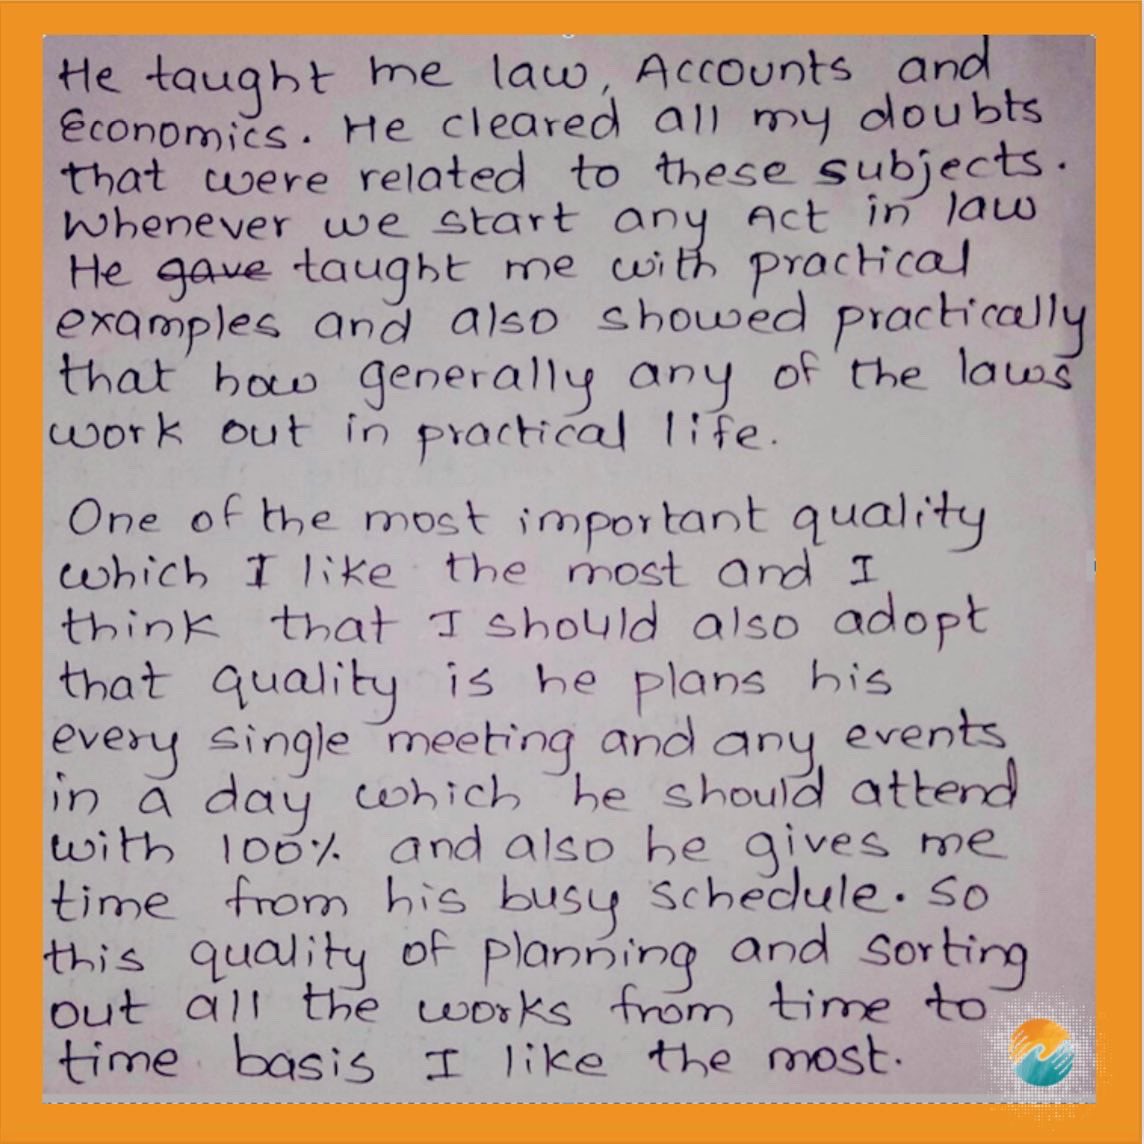 He taught me law, Accounts and
Economics. He cleared all my doubts
that were related to these subjects.
Whenever we start any Act in law
He gave taught me with practical
examples and also showed practically
that how generally any of the laws
work out in practical life.
One of the most important quality
which I like the most and I
think that I should also adopt
that quality is he plans his
every single meeting and any events
in a day which he should attend
with 100% and also he gives me
time from his busy schedule. So
this quality of planning and sorting
out all the works from time to
time basis I like the most.